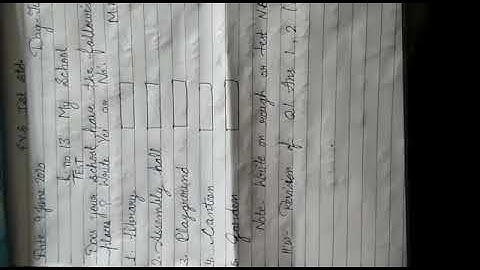 EVS
Date 9 June 2020 Day-
L no 13 My School
TEST
Does your school have the following
places? Write Yes or No.
1. Library
2. Assembly hall
3. Playground
4. Cantan
5. Garden
Note- Write on rough or test NB
H.W- Revision of Q1 Ans 1, 2